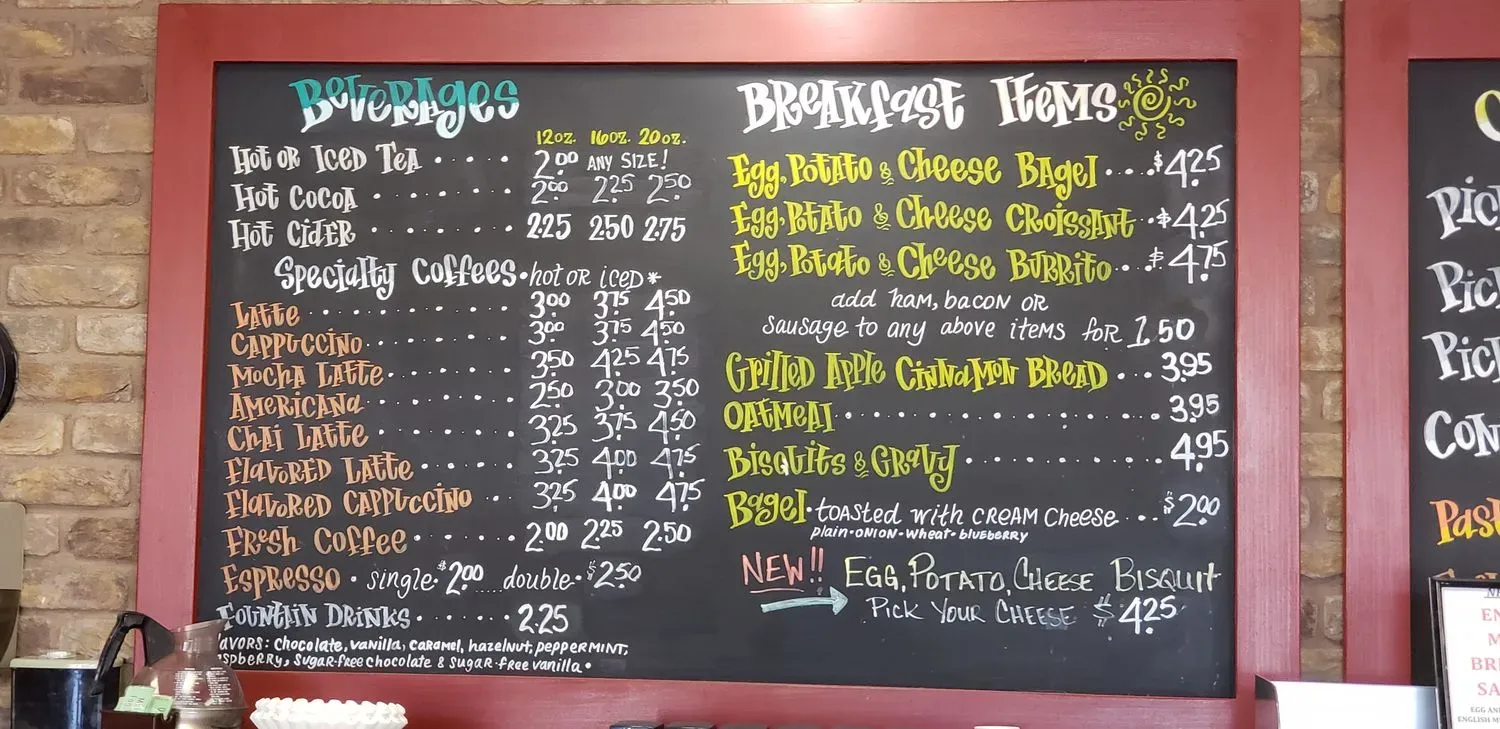 Beverages
12oz. 16oz. 20oz.
Hot or Iced Tea .... 2.00 ANY SIZE!
Hot Cocoa ..... 2.00 2.25 2.50
Hot Cider ...... 2.25 2.50 2.75
Specialty Coffees • hot or iced *
Latte .......... 3.00 3.75 4.50
Cappuccino ....... 3.00 3.75 4.50
Mocha Latte ...... 3.50 4.25 4.75
Americana ....... 2.50 3.00 3.50
Chai Latte ....... 3.25 3.75 4.50
Flavored Latte ..... 3.25 4.00 4.75
Flavored Cappuccino .. 3.25 4.00 4.75
Fresh Coffee ..... 2.00 2.25 2.50
Espresso • single • $2.00 ..... double • $2.50
Fountain Drinks ..... 2.25
avors: Chocolate, vanilla, caramel, hazelnut, peppermint,
spberry, sugar-free chocolate & sugar-free vanilla •
Breakfast Items
Egg, Potato & Cheese Bagel ... $4.25
Egg, Potato & Cheese Croissant .. $4.25
Egg, Potato & Cheese Burrito ... $4.75
add ham, bacon or
sausage to any above items for 1.50
Grilled Apple Cinnamon Bread ... 3.95
Oatmeal ............ 3.95
Bisquits & Gravy ......... 4.95
Bagel • toasted with cream cheese ... $2.00
plain • onion • wheat • blueberry
NEW!! Egg, Potato, Cheese Bisquit
Pick Your Cheese $4.25
Pic
Pic
Pic
Con
Past